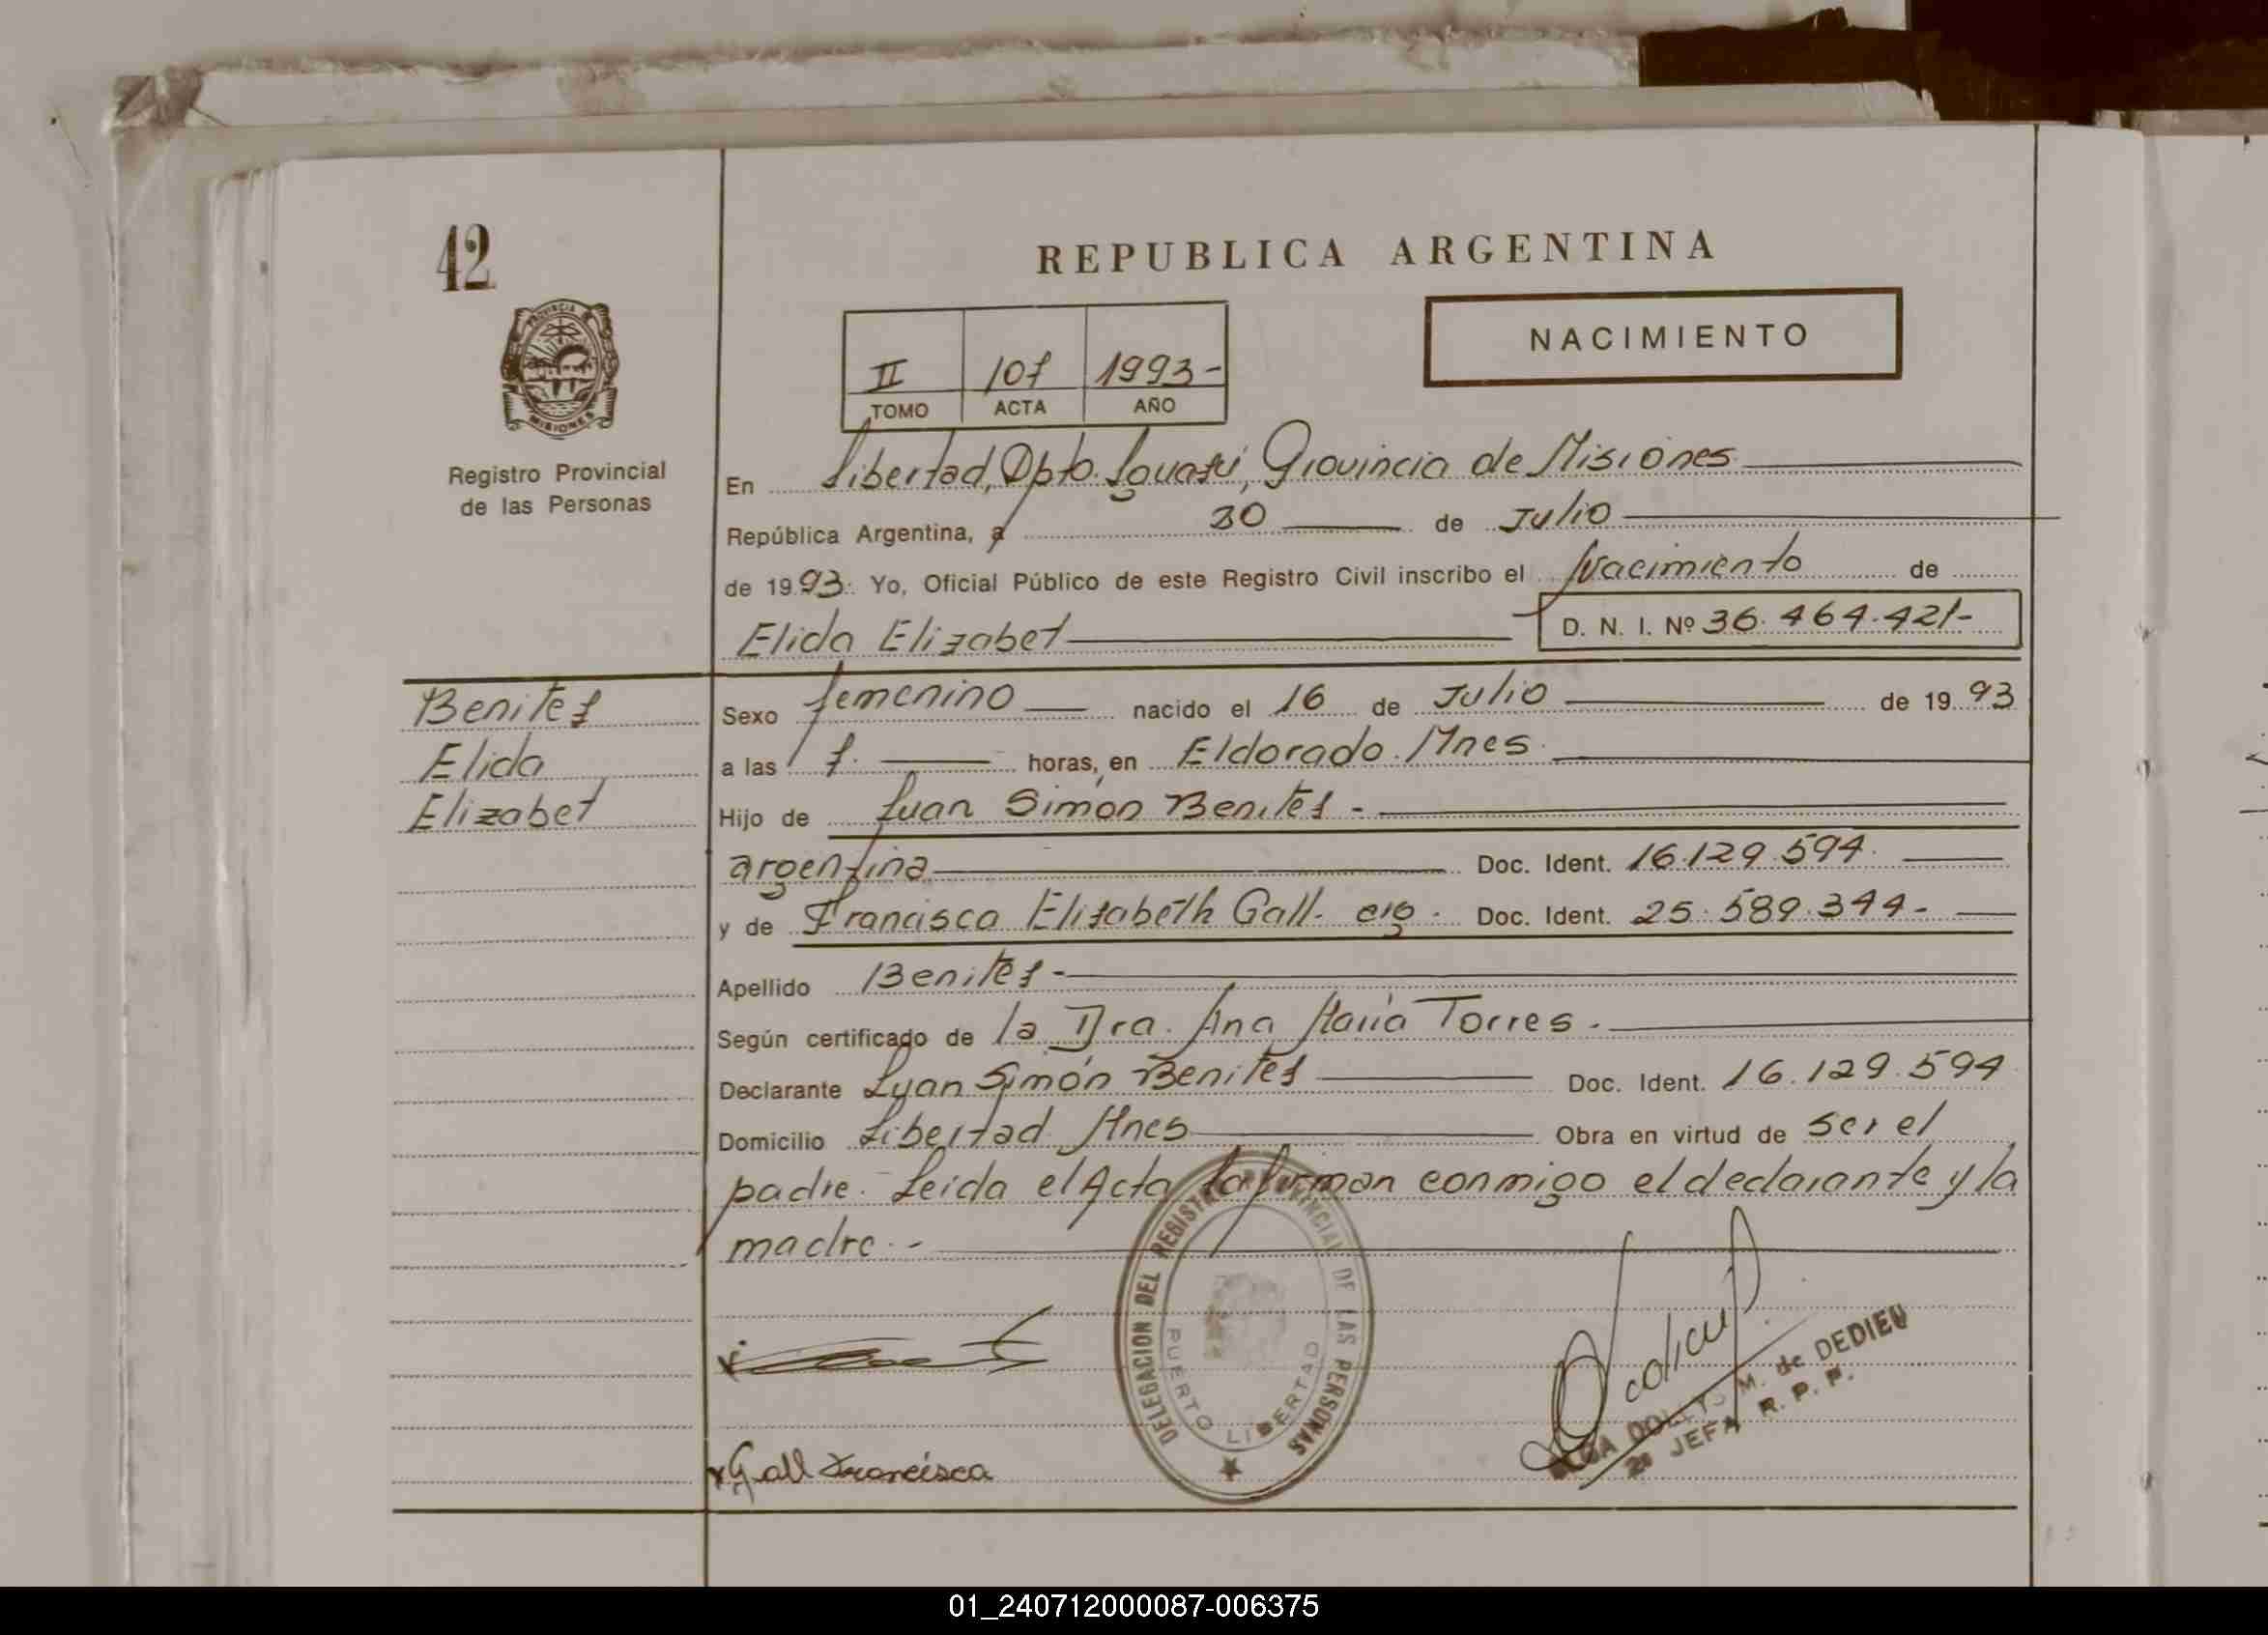 42
REPUBLICA ARGENTINA
NACIMIENTO
II 107 1993-
TOMO ACTA AÑO
PROVINCIA
MISIONES
Registro Provincial
de las Personas
En Libertad, Dpto. Iguazú, Provincia de Misiones
República Argentina, a 30 de Julio
de 1993. Yo, Oficial Público de este Registro Civil inscribo el Nacimiento de
Elida Elizabet D. N. I. Nº 36.464.421-
Benitez
Elida
Elizabet
Sexo femenino nacido el 16 de Julio de 1993
a las 7. horas, en Eldorado. Mnes.
Hijo de Juan Simón Benitez -
argentina Doc. Ident. 16.129.594.
y de Francisca Elizabeth Gall. Doc. Ident. 25.589.344-
Apellido Benitez -
Según certificado de la Dra. Ana María Torres.
Declarante Juan Simón Benitez Doc. Ident. 16.129.594
Domicilio Libertad Mnes Obra en virtud de ser el
padre. Leida el Acta la firman conmigo el declarante y la
madre.-
DELEGACION DEL REGISTRO PROVINCIAL DE LAS PERSONAS
PUERTO LIBERTAD
M. de DEDIEU
JEFA R. P. P.
x Gall Francisca
01_240712000087-006375